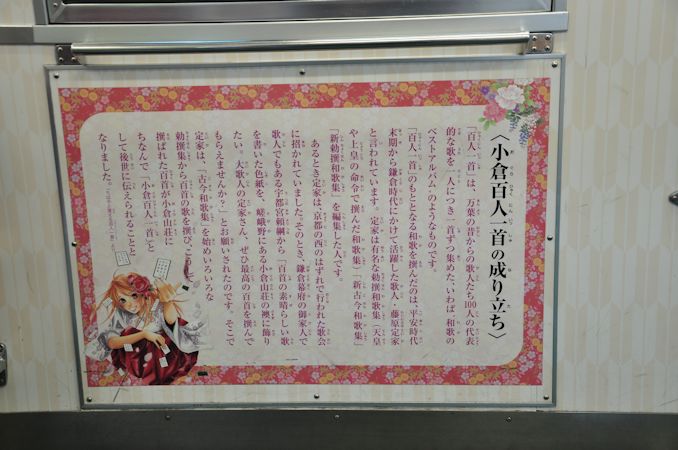 〈小倉百人一首の成り立ち〉
「百人一首」は、万葉の昔からの歌人たち100人の代表
的な歌を一人につき一首ずつ集めた、いわば“和歌の
ベストアルバム”のようなものです。
「百人一首」のもととなる和歌を撰んだのは、平安時代
末期から鎌倉時代にかけて活躍した歌人・藤原定家
と言われています。定家は有名な勅撰和歌集（天皇
や上皇の命令で撰んだ和歌集）「新古今和歌集」
「新勅撰和歌集」を編集した人です。
あるとき定家は、京都の西のはずれで行われた歌会
に招かれていました。そのとき、鎌倉幕府の御家人で
歌人でもある宇都宮頼綱から「百首の素晴らしい歌
を書いた色紙を、嵯峨野にある小倉山荘の襖に飾り
たい。大歌人の定家さん、ぜひ最高の百首を撰んで
もらえませんか？」とお願いされたのです。そこで
定家は、「古今和歌集」を始めいろいろな
勅撰集から百首の歌を撰び、
撰ばれた百首が小倉山荘に
ちなんで「小倉百人一首」と
して後世に伝えられることと
なりました。